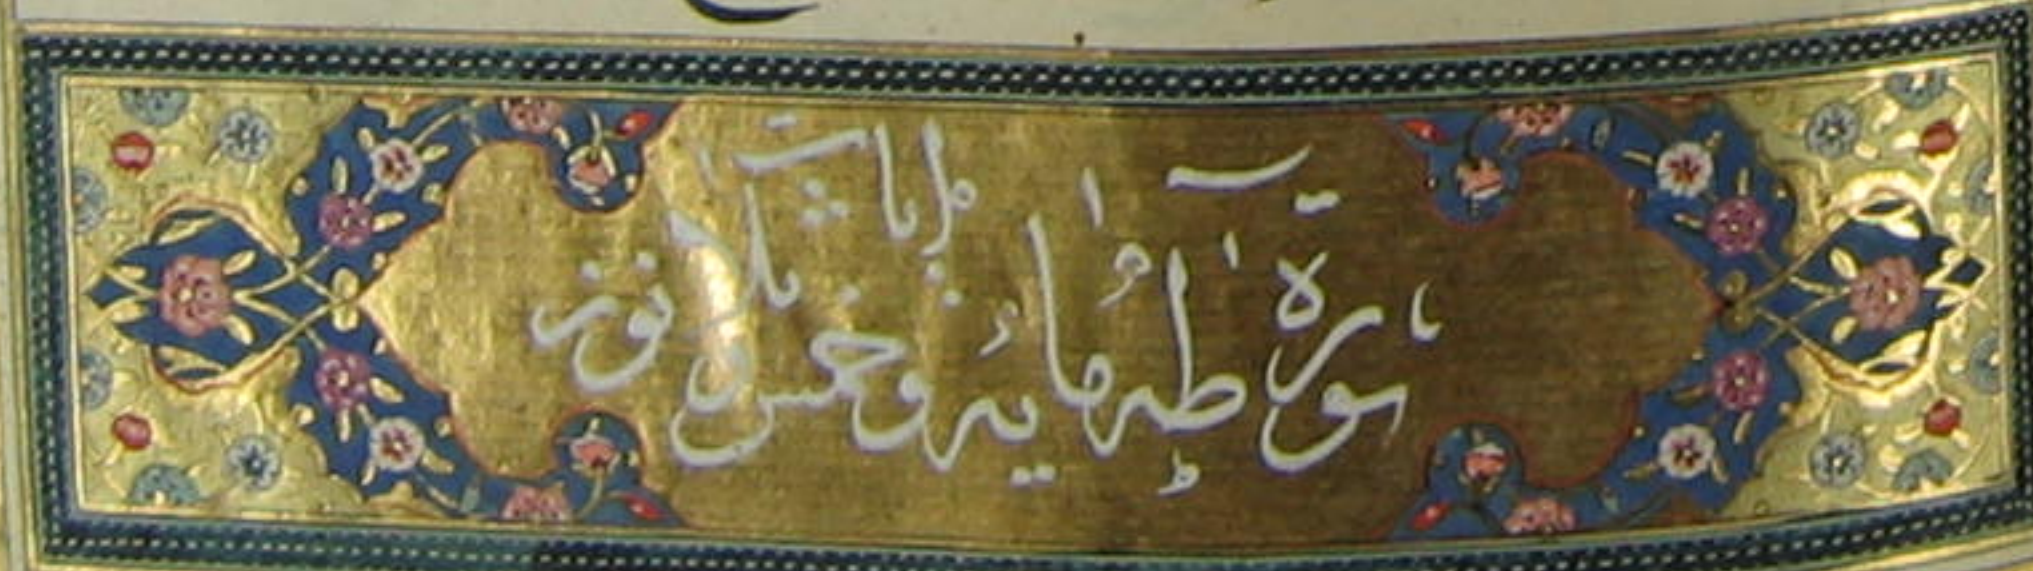 سورة طه مايه وخمس وثلاثون ايات